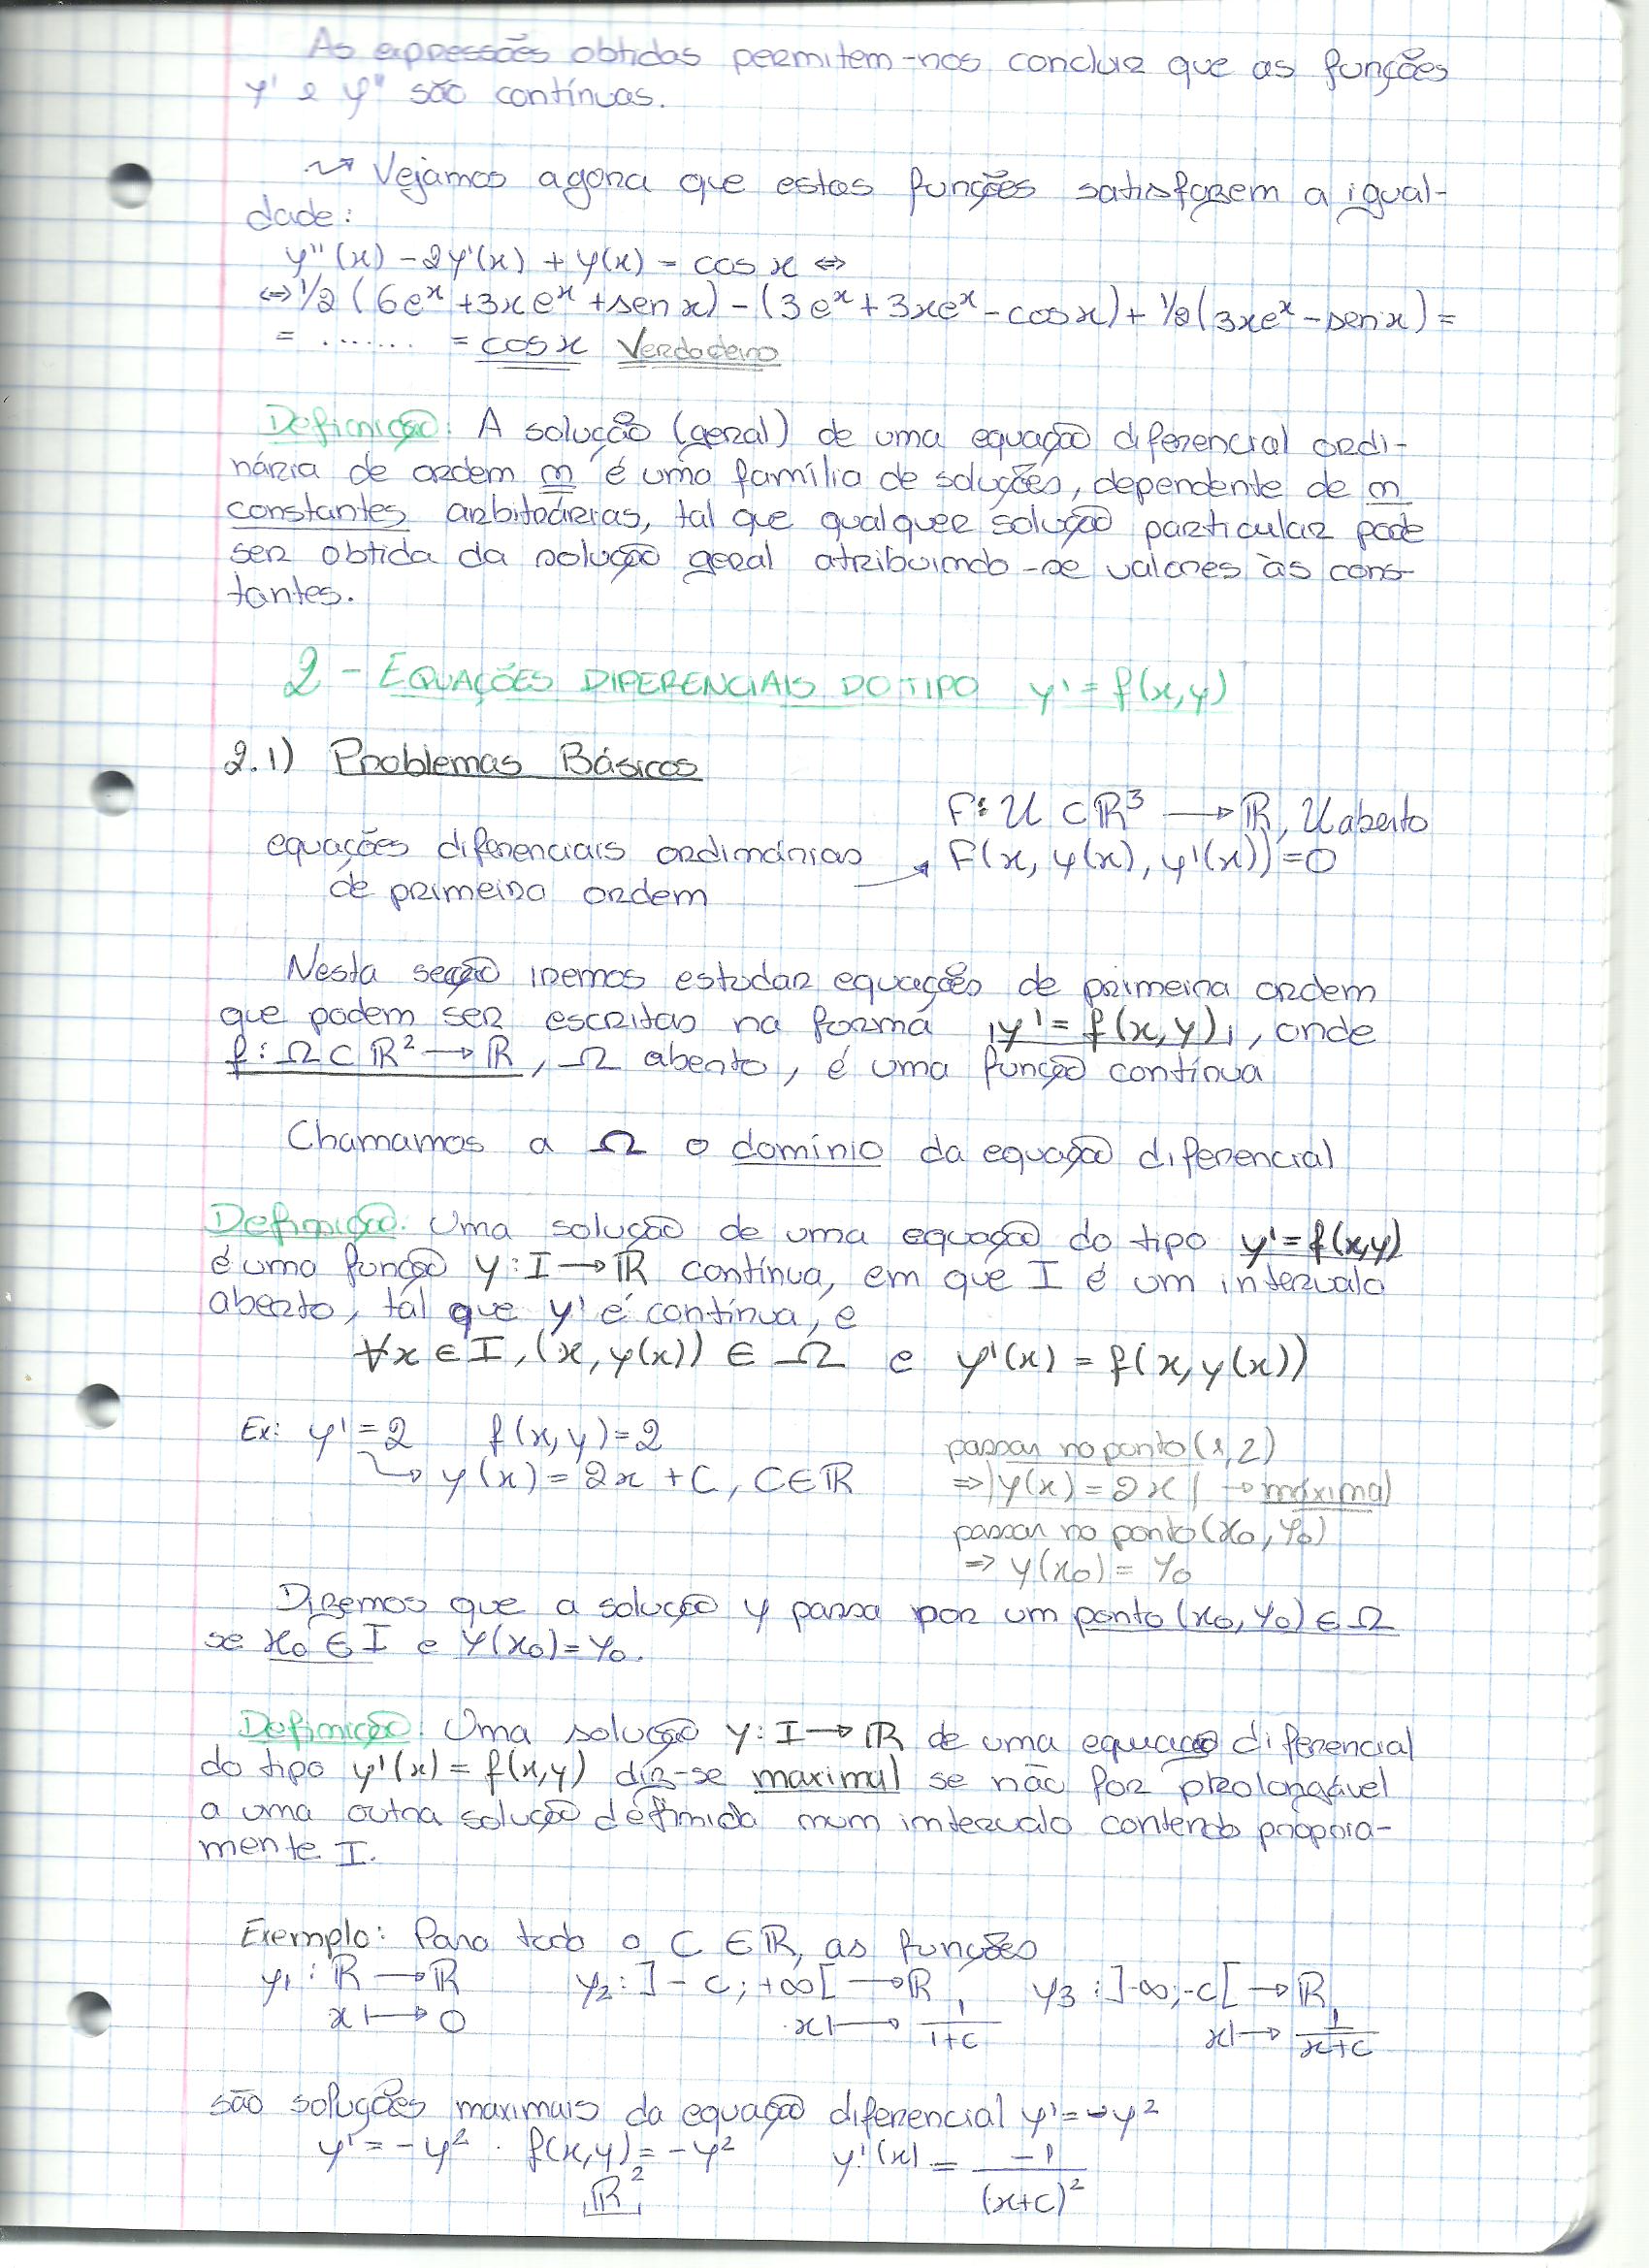 As expressões obtidas permitem-nos concluir que as funções
y' e y'' são contínuas.
Vejamos agora que estas funções satisfazem a igual-
dade:
y''(x) - 2y'(x) + y(x) = cos x ⇔
⇔ 1/2 (6e^x + 3xe^x + sen x) - (3e^x + 3xe^x - cos x) + 1/2 (3xe^x - sen x) =
= ....... = cos x Verdadeiro
Definição: A solução (geral) de uma equação diferencial ordi-
nária de ordem n é uma família de soluções, dependente de n
constantes arbitrárias, tal que qualquer solução particular pode
ser obtida da solução geral atribuindo-se valores às cons-
tantes.
2 - EQUAÇÕES DIFERENCIAIS DO TIPO y' = f(x,y)
2.1) Problemas Básicos
F: U ⊂ ℝ³ → ℝ, U aberto
equações diferenciais ordinárias → F(x, y(x), y'(x)) = 0
de primeira ordem
Nesta secção iremos estudar equações de primeira ordem
que podem ser escritas na forma |y' = f(x,y)|, onde
f: Ω ⊂ ℝ² → ℝ, Ω aberto, é uma função contínua
Chamamos a Ω o domínio da equação diferencial
Definição: Uma solução de uma equação do tipo y' = f(x,y)
é uma função y: I → ℝ contínua, em que I é um intervalo
aberto, tal que y' é contínua, e
∀x ∈ I, (x, y(x)) ∈ Ω e y'(x) = f(x, y(x))
Ex: y' = 2 f(x,y) = 2
→ y(x) = 2x + C, C ∈ ℝ
passar no ponto (1,2)
⇒ |y(x) = 2x| → máximal
passar no ponto (x₀, y₀)
⇒ y(x₀) = y₀
Diremos que a solução y passa por um ponto (x₀, y₀) ∈ Ω
se x₀ ∈ I e y(x₀) = y₀.
Definição: Uma solução y: I → ℝ de uma equação diferencial
do tipo y'(x) = f(x,y) diz-se maximal se não for prolongável
a uma outra solução definida num intervalo contendo própria-
mente I.
Exemplo: Para todo o C ∈ ℝ, as funções
y₁: ℝ → ℝ y₂: ]-c; +∞[ → ℝ, y₃: ]-∞; -c[ → ℝ
x ↦ 0 x ↦ 1/(1+c) x ↦ 1/(x+c)
são soluções maximais da equação diferencial y' = -y²
y' = -y². f(x,y) = -y² y'(x) = -1/(x+c)²
ℝ²